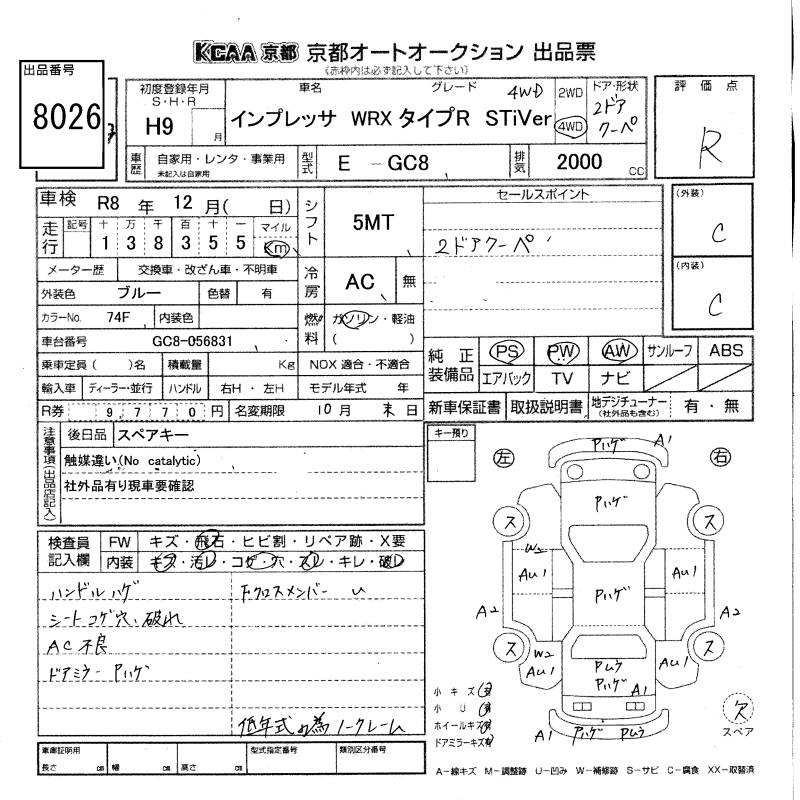 KCAA 京都 京都オートオークション 出品票
(赤枠内は必ず記入して下さい)
出品番号
8026
初度登録年月
S・H・R
H9
月
車名
グレード
インプレッサ WRX タイプR STiVer
4WD
2WD
4WD
ドア・形状
2ドア
クーペ
評価点
R
車歴
自家用・レンタ・事業用
未記入は自家用
型式
E - GC8
排気
2000
CC
車検 R8 年 12 月( 日)
走行
記号 十 万 千 百 十 一 マイル
1 3 8 3 5 5 Km
シフト
5MT
セールスポイント
2ドアクーペ
(外装)
C
(内装)
C
メーター歴 交換車・改ざん車・不明車
外装色 ブルー 色替 有
冷房
AC
無
カラーNo. 74F 内装色
燃料
ガソリン・軽油
( )
車台番号 GC8-056831
乗車定員 ( )名 積載量 Kg NOX 適合・不適合
輸入車 ディーラー・並行 ハンドル 右H・左H モデル年式 年
R券 9,770円 名変期限 10月 末日
純正装備品
PS PW AW サンルーフ ABS
エアバック TV ナビ
新車保証書 取扱説明書 地デジチューナー(社外品も含む) 有・無
注意事項(出品店記入)
後日品 スペアキー
触媒違い(No catalytic)
社外品有り現車要確認
キー預り
左
右
検査員記入欄
FW キズ・飛石・ヒビ割・リペア跡・X要
内装 キズ・汚レ・コゲ・穴・スレ・キレ・破レ
ハンドルハゲ
シートコゲ穴、破れ
AC不良
ドアミラーPハゲ
Fクロスメンバー U
低年式の為ノークレーム
Pハゲ A1
Pハゲ
ス ス
W2
AU1 AU1
Pハゲ
A2 A2
ス ス
W2
AU1 AU1
Pムラ
Pハゲ A1
A1 Pハゲ Pムラ
小キズ(有)
小U(有)
ホイールキズ(有)
ドアミラーキズ(有)
欠
スペア
車庫証明用
長さ cm 幅 cm 高さ cm
型式指定番号
類別区分番号
A－線キズ M－調整跡 U－凹み W－補修跡 S－サビ C－腐食 XX－取替済